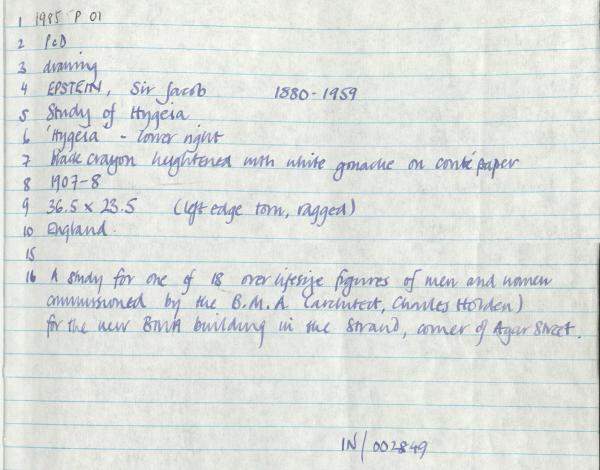 1 1985 P 01
2 P&D
3 drawing
4 EPSTEIN, Sir Jacob 1880-1959
5 Study of Hygeia
6 'Hygeia - lower right
7 black crayon heightened with white gouache on conté paper
8 1907-8
9 36.5 x 23.5 (left edge torn, ragged)
10 England.
15
16 A study for one of 18 over lifesize figures of men and women
commissioned by the B.M.A (architect, Charles Holden)
for the new BMA building in the Strand, corner of Agar Street.
IN/002849